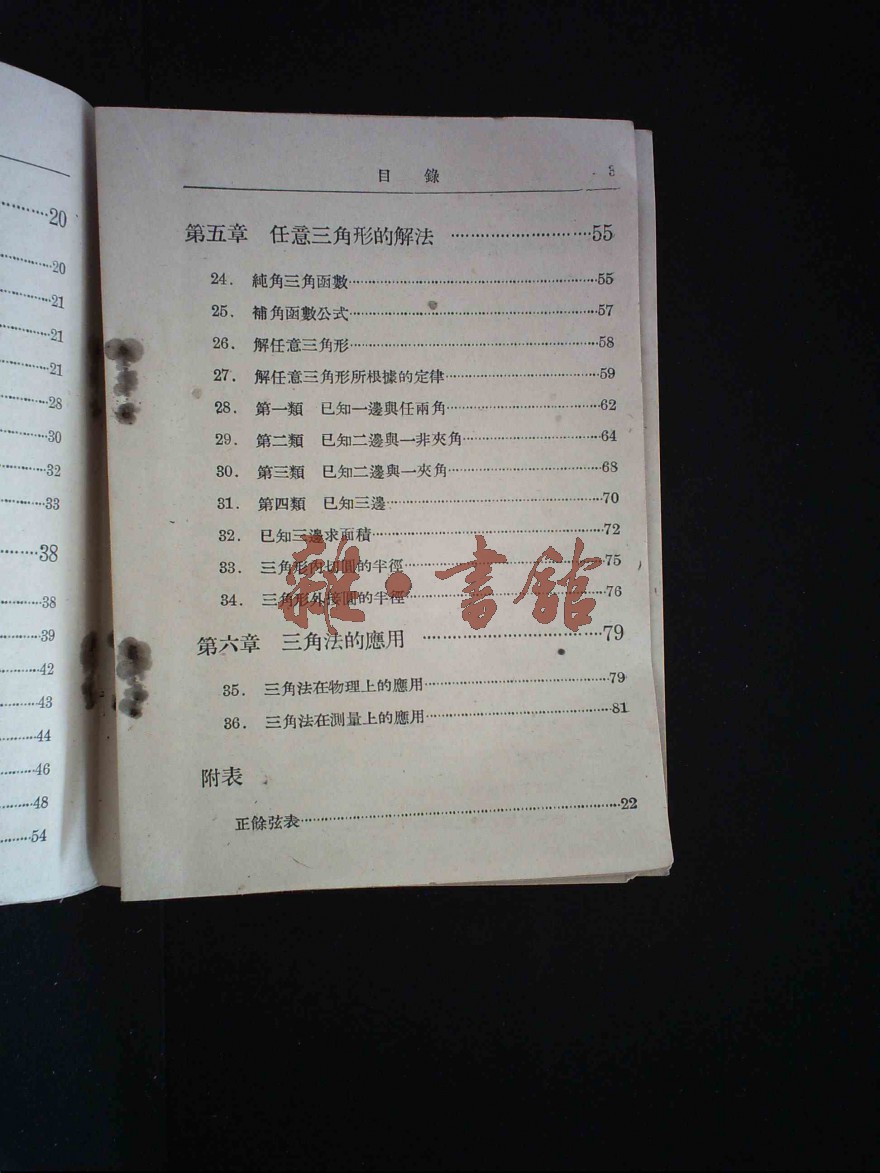 20
20
21
21
21
28
30
32
33
38
38
39
42
43
44
46
48
54
目 錄 3
第五章 任意三角形的解法 ……………………55
24. 純角三角函數……………………55
25. 補角函數公式……………………57
26. 解任意三角形……………………58
27. 解任意三角形所根據的定律……………………59
28. 第一類 已知一邊與任兩角……………………62
29. 第二類 已知二邊與一非夾角……………………64
30. 第三類 已知二邊與一夾角……………………68
31. 第四類 已知三邊……………………70
32. 已知三邊求面積……………………72
33. 三角形內切圓的半徑……………………75
34. 三角形外接圓的半徑……………………76
雜·書館
第六章 三角法的應用 ……………………79
35. 三角法在物理上的應用……………………79
36. 三角法在測量上的應用……………………81
附表
正餘弦表……………………22